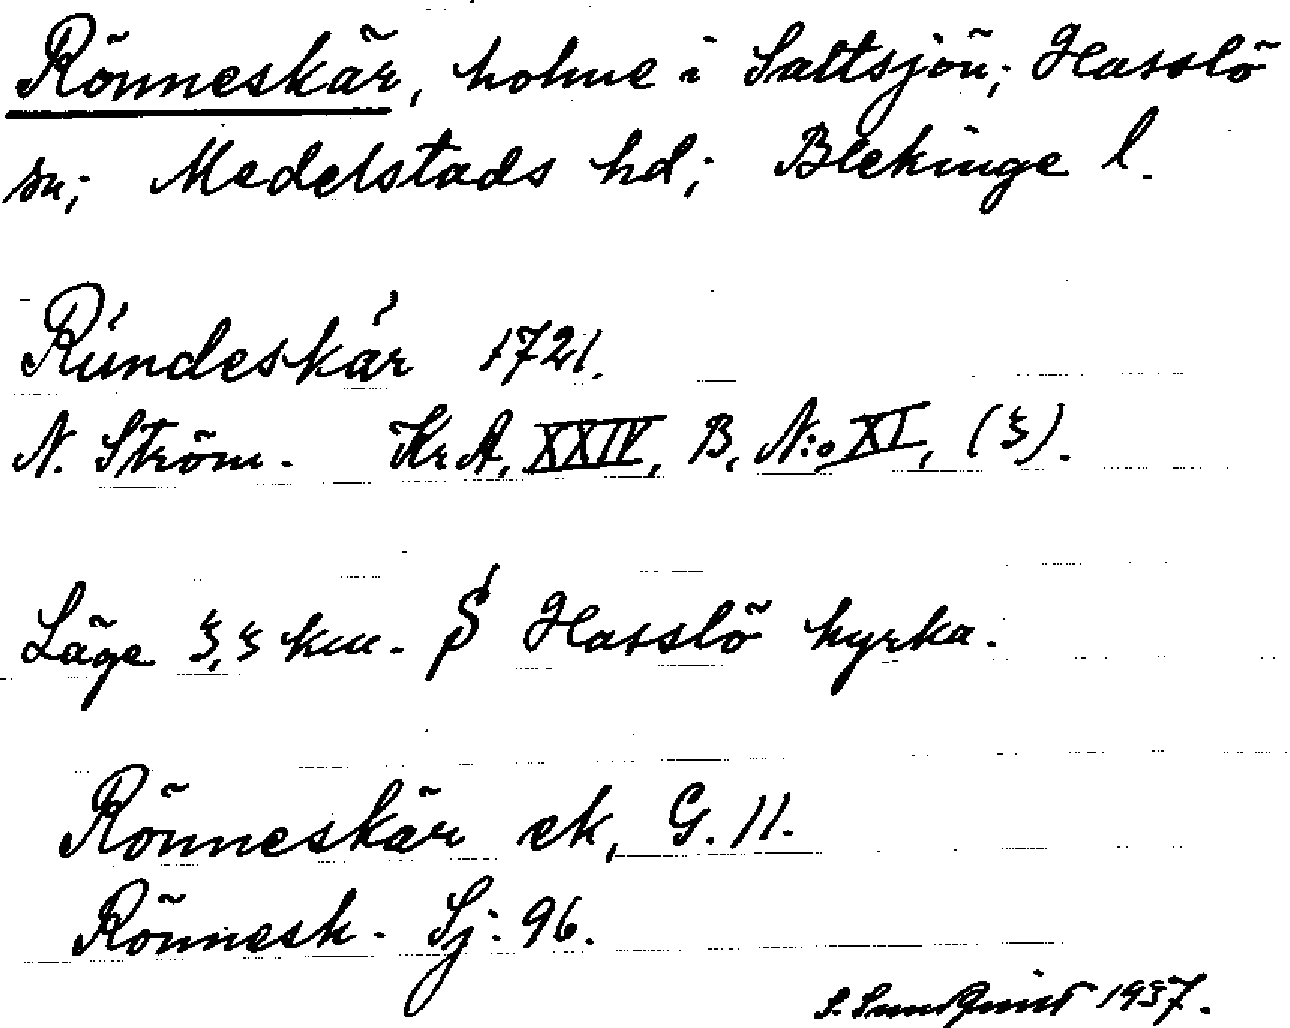 Rönneskär, holme i Saltsjön; Hasslö
sn; Medelstads hd; Blekinge l.
Rúndeskár 1721.
N. Ström. KrA, XXIV, B, N:o XI, (3).
Läge 3,3 km. S Hasslö kyrka.
Rönneskär ek, G. 11.
Rönnesk. Sj: 96.
S. Sundquist 1937.